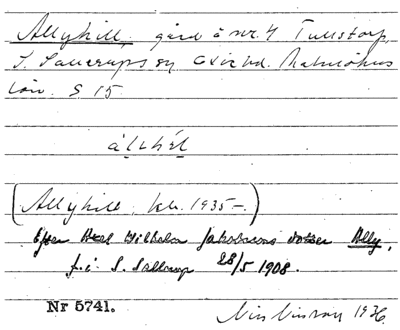 Allyhill, gård å nr. 4 Tullstorp,
S. Sallerups sn Oxie hd. Malmöhus
län. S 15
(Allyhill, kbr. 1935–.)
Efter Axel Wilhelm Jakobssons dotter Ally,
f. i S. Sallerup 28/5 1908.
Nr 5741.
1936